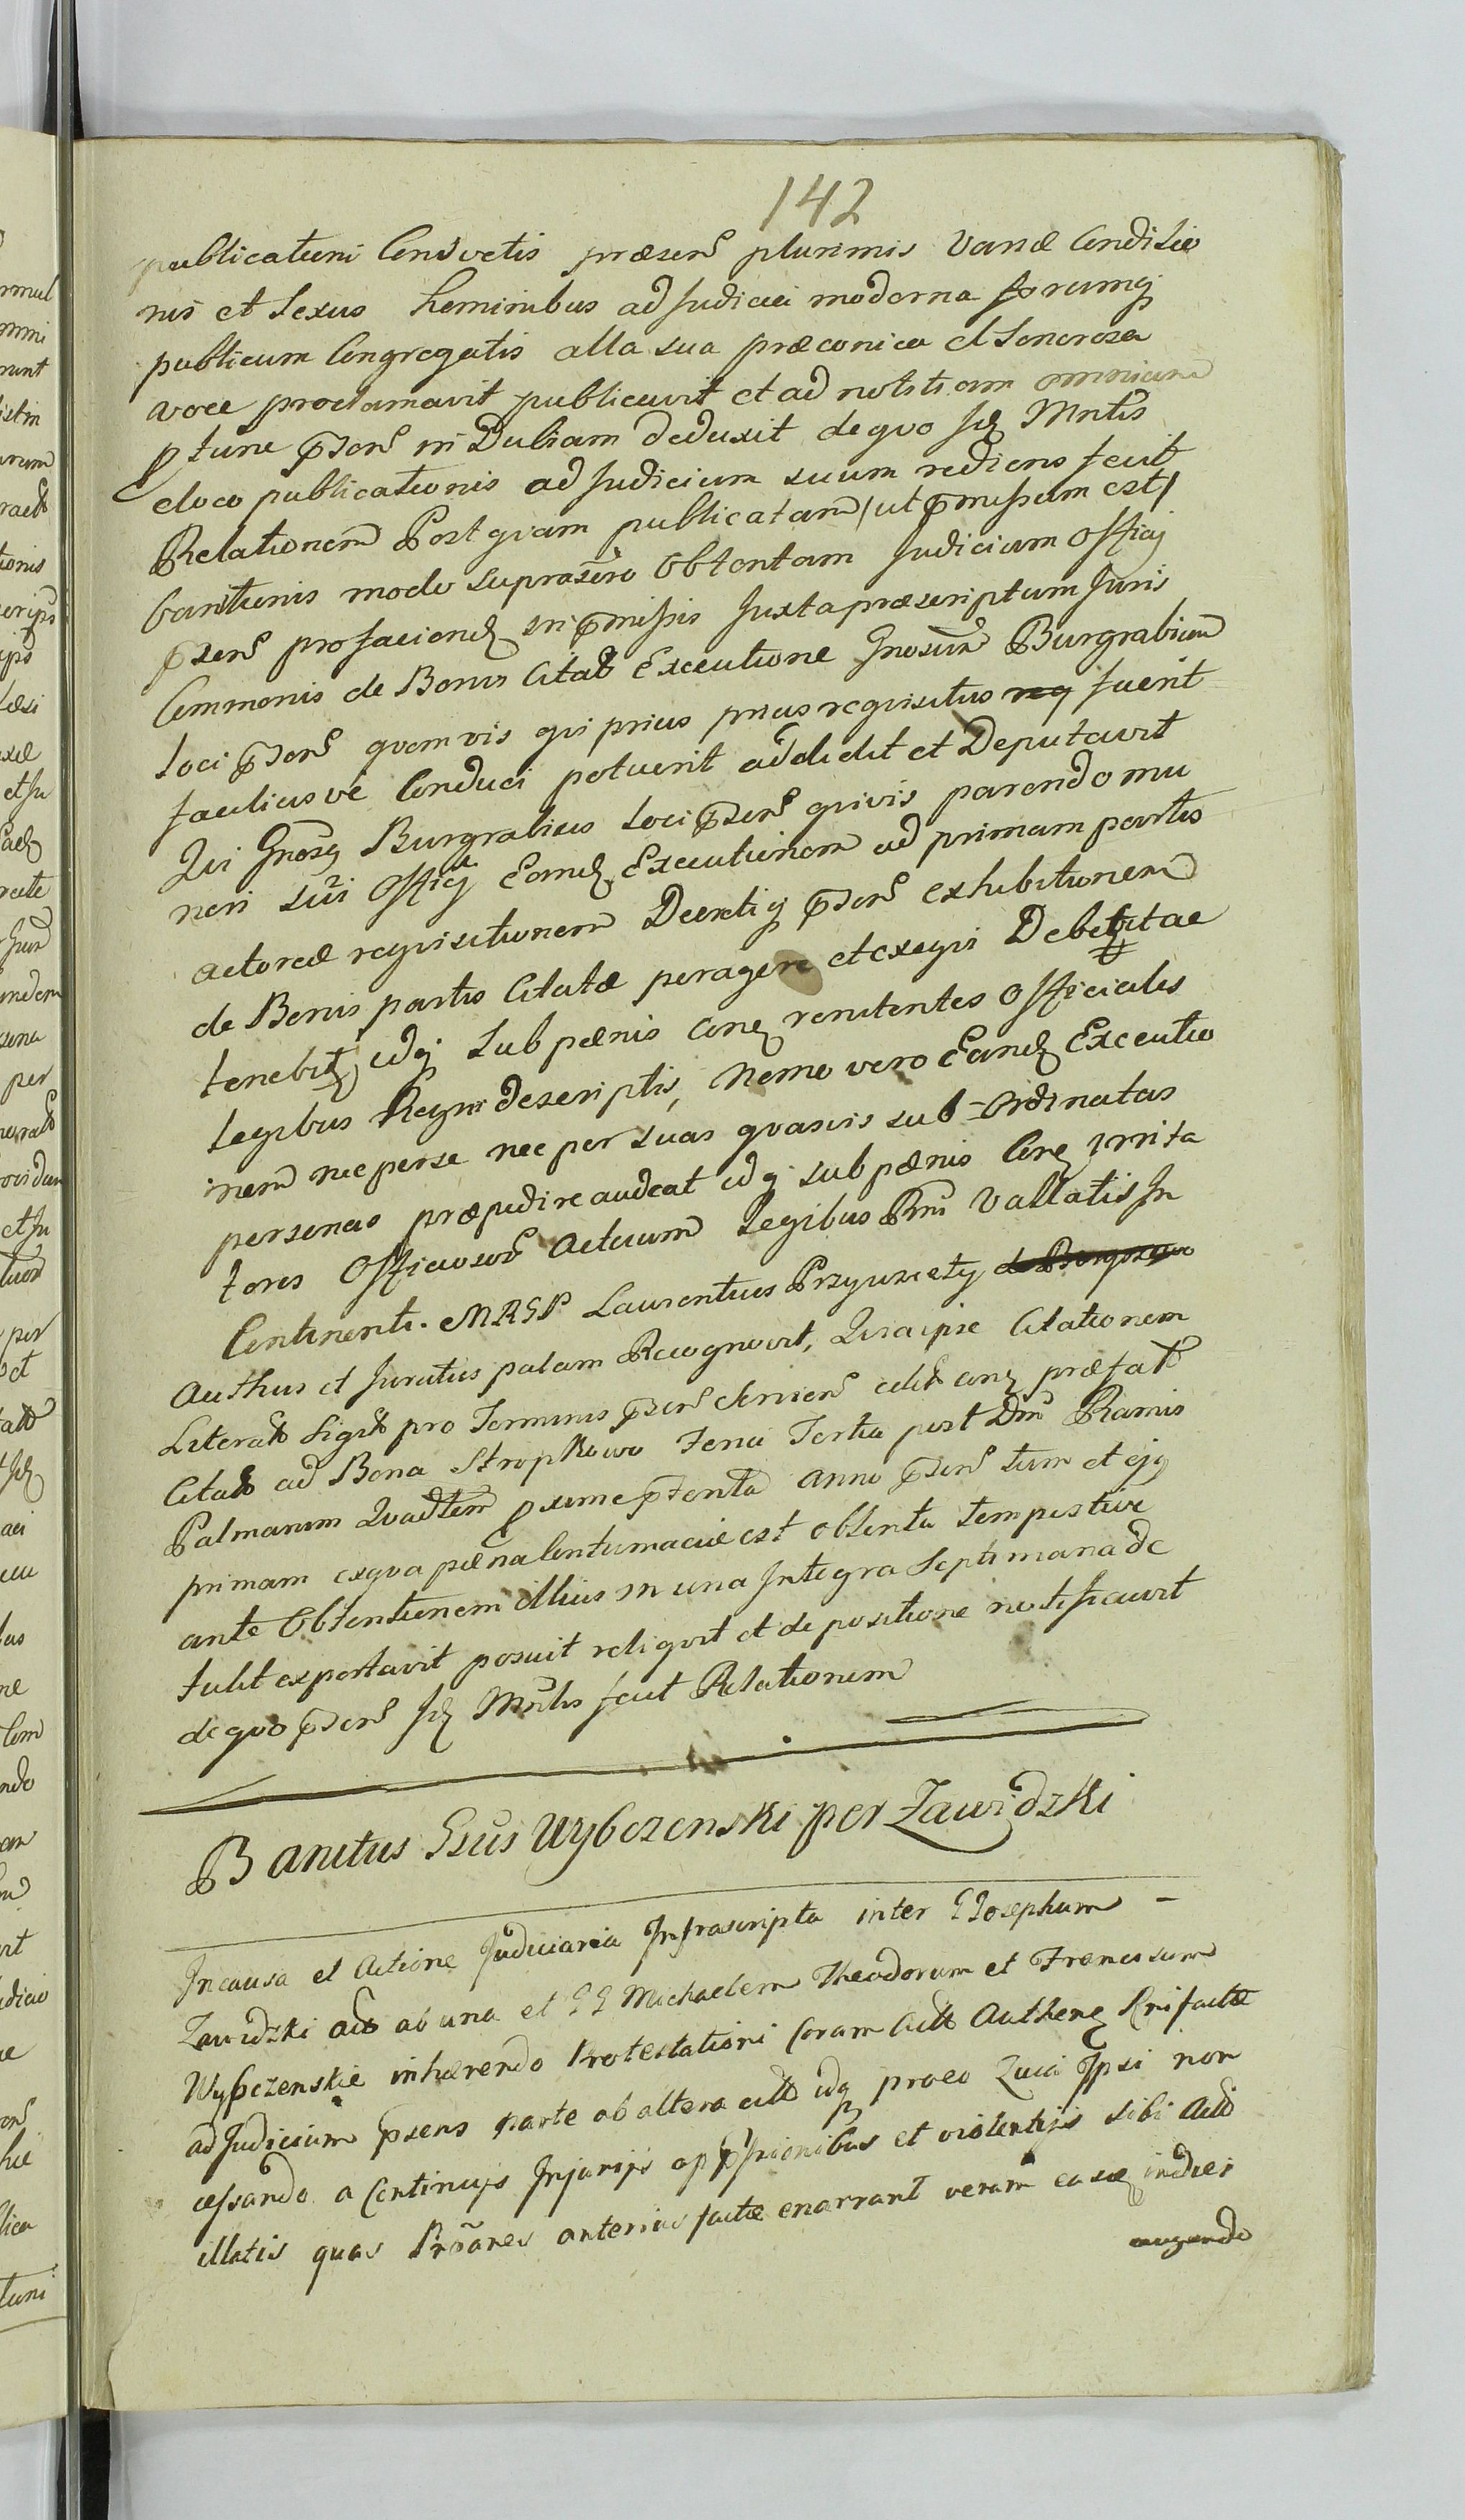 142
publicationi Consvetis præsen. plurimis Variæ Conditio
nis et Sexus hominibus ad Judicia moderna forumq
publicum Congregatis alta sua præconica et Sonorosa
voce proclamavit publicavit et ad notitiam omnium
ptunc pṣen. in Dubiam deduxit de quo Jd. Mntis
e loco publicationis ad Judicium suum rediens fecit
Relationem Post quam publicatam /ut pmissum est/
banitionis modo suprascro Obtentam Judicium Officy
pṣens pro faciend. in pmissis Juxta præscriptum Juris
Communis de Bonis Citat Executione Gnosum Burgrabium
loci pṣen. quemvis qui prius prius requisitus req fuerit
faciliusve Conduci potuerit addidit et Deputavit
Qui Gnosq Burgrabius loci pṣen. quivis parendo mu
neri sui Officy Eamd. Executionem ad primam partis
actoreæ requisitionem Decretiq pṣen. exhibitionem
de Bonis partis Citatæ peragere et exequi Debebit ac
tenebit. idq sub pœnis Con. renitentes Officiales
legibus Regni descriptis, Nemo vero Eand. Executio
nem nec per se nec per suas quasvis sub-Ordinatas
personas præpedire audeat idq sub pœnis Con. irrita
tores Officiosor. actuum legibus Rni Vallatis In
Continenti. MRSP Laurentius Przyuszcety de
Authus et Juratus palam Recognovit, Quia ipse Citationem
Literat. Sigit. pro Terminis pṣen. Servien. cdit con. præfat.
Citat. ad Bona Stropkowo Feria Tertia post Dnm Ramis
Palmarum Quadtem pxime pterita anno pṣen. tum et ejq
primam ex qva pœna Contumaciæ est obtenta tempestive
ante Obtentionem illius in una Integra Septimana de
tulit exportavit posuit reliqvit et de positione notificavit
de quo pṣen. Jd. Mntis fecit Relationem
Banitus Gsus Wybczenski per Zawidzki
In causa et Actione Judiciaria Infrascripta inter G Josephum -
Zawidzki act. ab una et GG Michaelem Theodorum et Franciscum
Wybczenskie inhærendo Protestationi Coram Actt. Authen. Rni factæ
ad Judicium pṣens parte ab altera citt. idq pro eo Quia Ipsi non
cessando a Continuys Injurijs oppssionibus et violentijs sibi Act.
illatis quas Prothones anterius factæ enarrant verum easd. indies
augendo